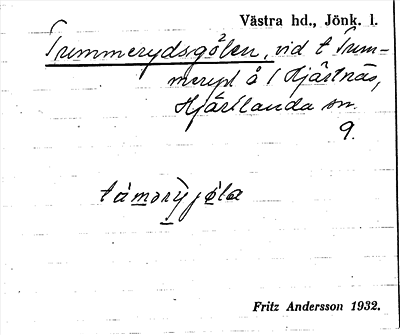 Västra hd., Jönk. l.
Trummerydsgölen, vid t Trum-
meryd å / Hjärtnäs,
Hjärtlanda sn.
9.
Fritz Andersson 1932.